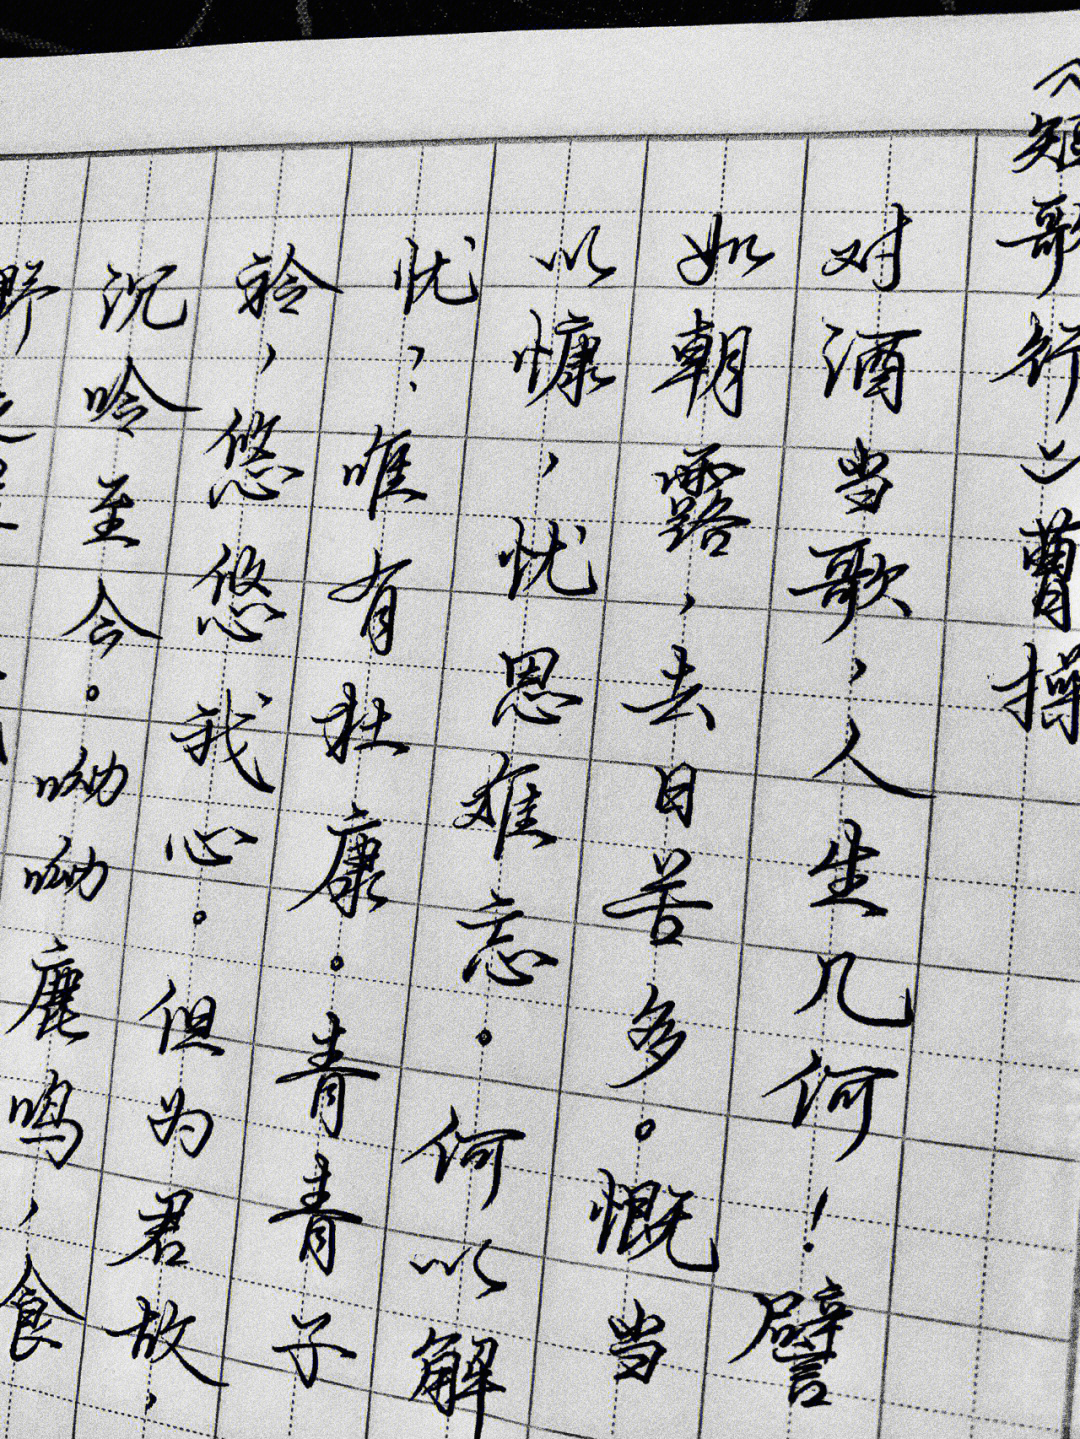 《短歌行》曹操
对酒当歌，人生几何！譬
如朝露，去日苦多。慨当
以慷，忧思难忘。何以解
忧？唯有杜康。青青子
衿，悠悠我心。但为君故，
沉吟至今。呦呦鹿鸣，食
野